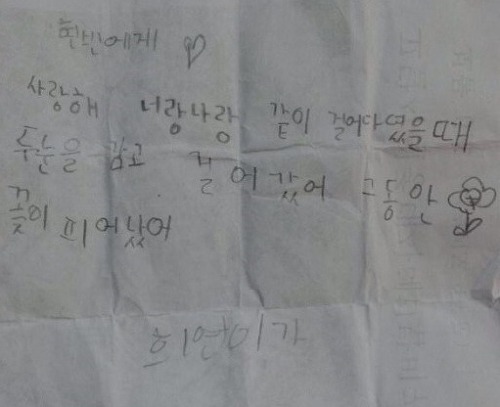 현빈에게
사랑해 너랑나랑 같이 걸어다녔을때
두눈을 감고 그동안
꽃이 피어났어